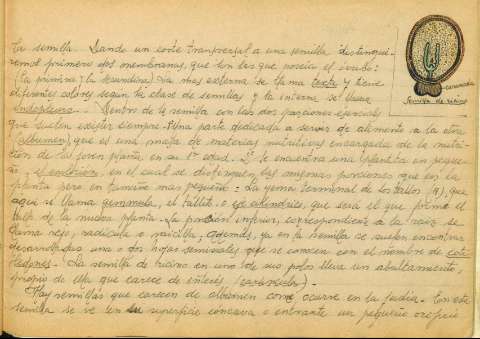 La semilla. Dando un corte tranversal a una semilla distingui-
remos primero dos membranas, que son las que poseía el óvulo:
(la primina y la secundina). La mas externa se llama testa y tiene
diferentes colores segun la clase de semillas y la interna se llama
endopleura. Dentro de la semilla son las dos porciones esenciales
que suelen existir siempre. Una parte dedicada a servir de alimento a la otra
(albumen), que es una masa de materias nutritivas encargada de la nutri-
ción de la joven planta en su 1ª edad. Y se encuentra una plantita en peque-
ño, el embrion, en el cual se distinguen las mismas porciones que en la
planta pero en tamaño mas pequeño: La yema terminal de los tallos, que
aqui se llama gemmula, el tallito o eje cilindrico, que será el que forme el
tallo de la nueva planta. La porción inferior, correspondiente a la raiz se
llama rejo, radicula o raicilla. Además, ya en la semilla se suelen encontrar
desarrolladas una o dos hojas seminales que se conocen con el nombre de coti-
ledones. La semilla de ricino en uno de sus polos lleva un abultamiento,
propio de ella que carece de interés (caruncula).
Hay semillas que carecen de albumen como ocurre en la judia. En esta
semilla se ve en su superficie concava o entrante un pequeño orificio
caruncula
Semilla de ricino